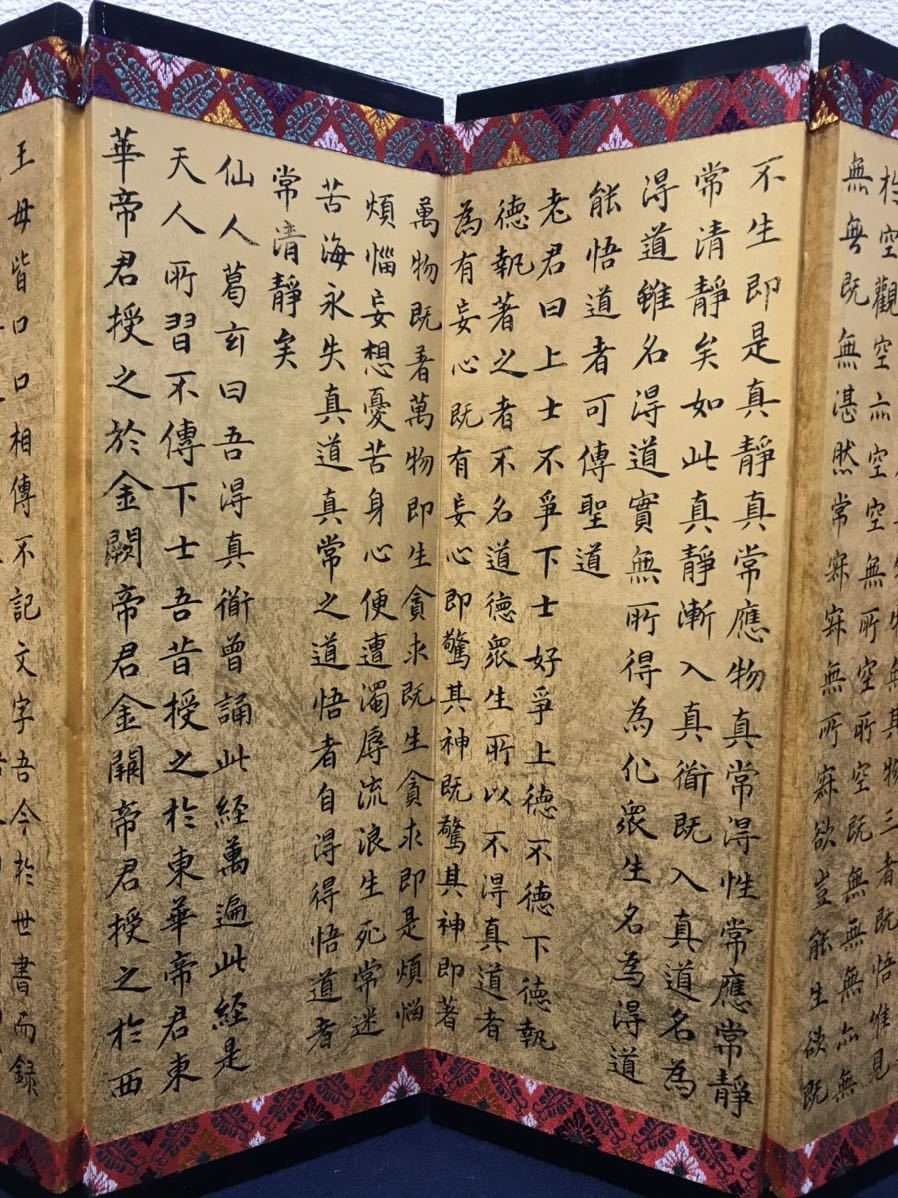 於空觀空亦空空無所空所空既無無無亦無
無無既無湛然常寂寂無所寂欲豈能生欲既
不生即是真靜真常應物真常得性常應常靜
常清靜矣如此真靜漸入真道既入真道名為
得道雖名得道實無所得為化眾生名為得道
能悟道者可傳聖道
老君曰上士不爭下士好爭上德不德下德執
德執著之者不名道德眾生所以不得真道者
為有妄心既有妄心即驚其神既驚其神即著
萬物既著萬物即生貪求既生貪求即是煩惱
煩惱妄想憂苦身心便遭濁辱流浪生死常迷
苦海永失真道真常之道悟者自得得悟道者
常清靜矣
仙人葛玄曰吾得真道曾誦此經萬遍此經是
天人所習不傳下士吾昔授之於東華帝君東
華帝君授之於金闕帝君金闕帝君授之於西
王母皆口口相傳不記文字吾今於世書而錄